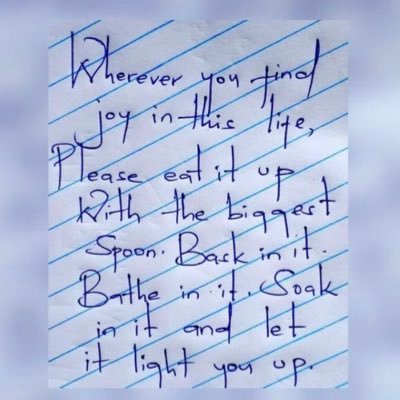 Wherever you find
joy in this life,
Please eat it up
With the biggest
Spoon. Bask in it.
Bathe in it. Soak
in it and let
it light you up.